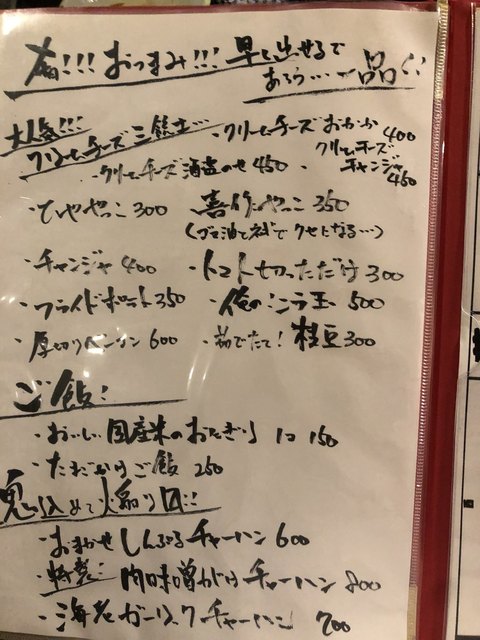 !!! おつまみ!!! 早く出せるで
あろう… 一品!!
大人気!!!
クリームチーズ三銃士… ・クリームチーズおかか 400
・クリームチーズ酒盗のせ 450 ・クリームチーズチャンジャ 450
・ひややっこ 300 ・喜作やっこ 350
(ゴマ油と  でクセになる…)
・チャンジャ 400 ・トマト切っただけ 300
・フライドポテト 350 ・俺のニラ玉 500
・厚切りベーコン 600 ・茹でたて! 枝豆 300
ご飯!
・おいしい国産米のおにぎり 1コ 150
・たまごかけご飯 250
魂込めて煽り!!
・おまかせ しんぷるチャーハン 600
・特製! 肉味噌がけチャーハン 800
・海老ガーリックチャーハン 700